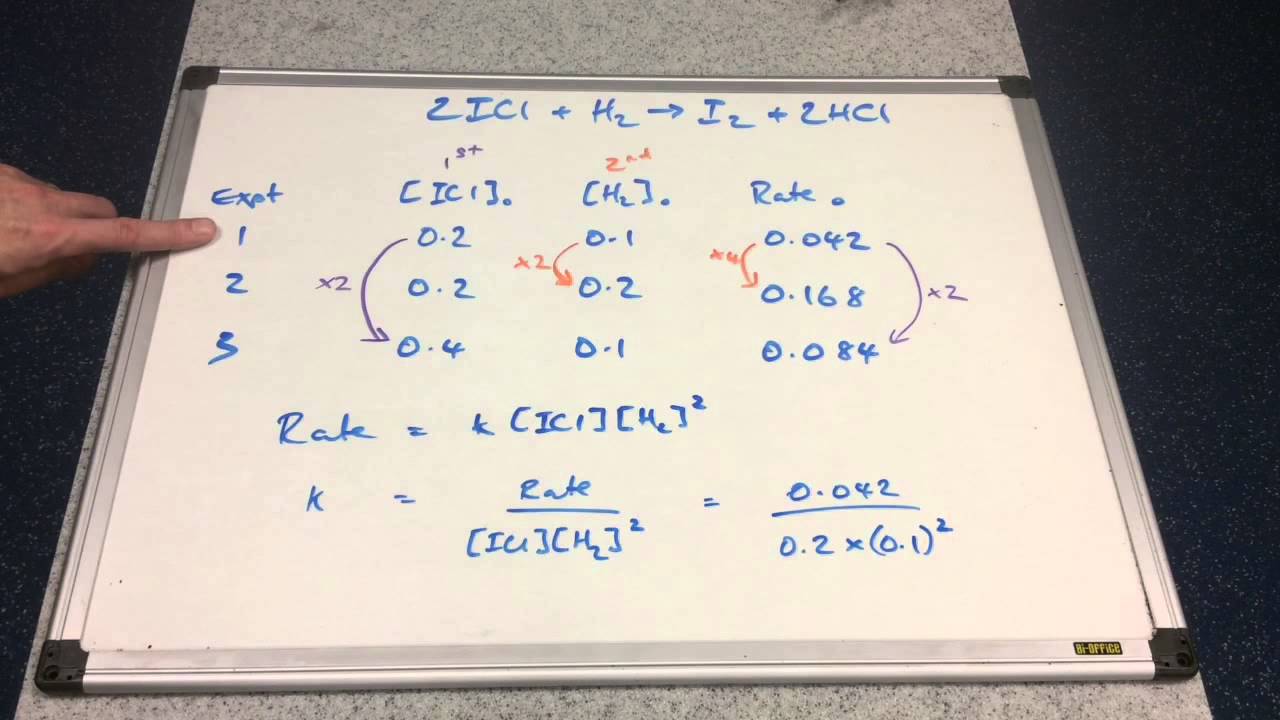 2ICl + H₂ → I₂ + 2HCl
1st 2nd
Expt [ICl]₀ [H₂]₀ Rate₀
1 0.2 0.1 0.042
×2 ×4
2 ×2 0.2 0.2 0.168 ×2
3 0.4 0.1 0.084
Rate = k [ICl][H₂]²
k = Rate / [ICl][H₂]² = 0.042 / 0.2 × (0.1)²
Bi-OFFICE